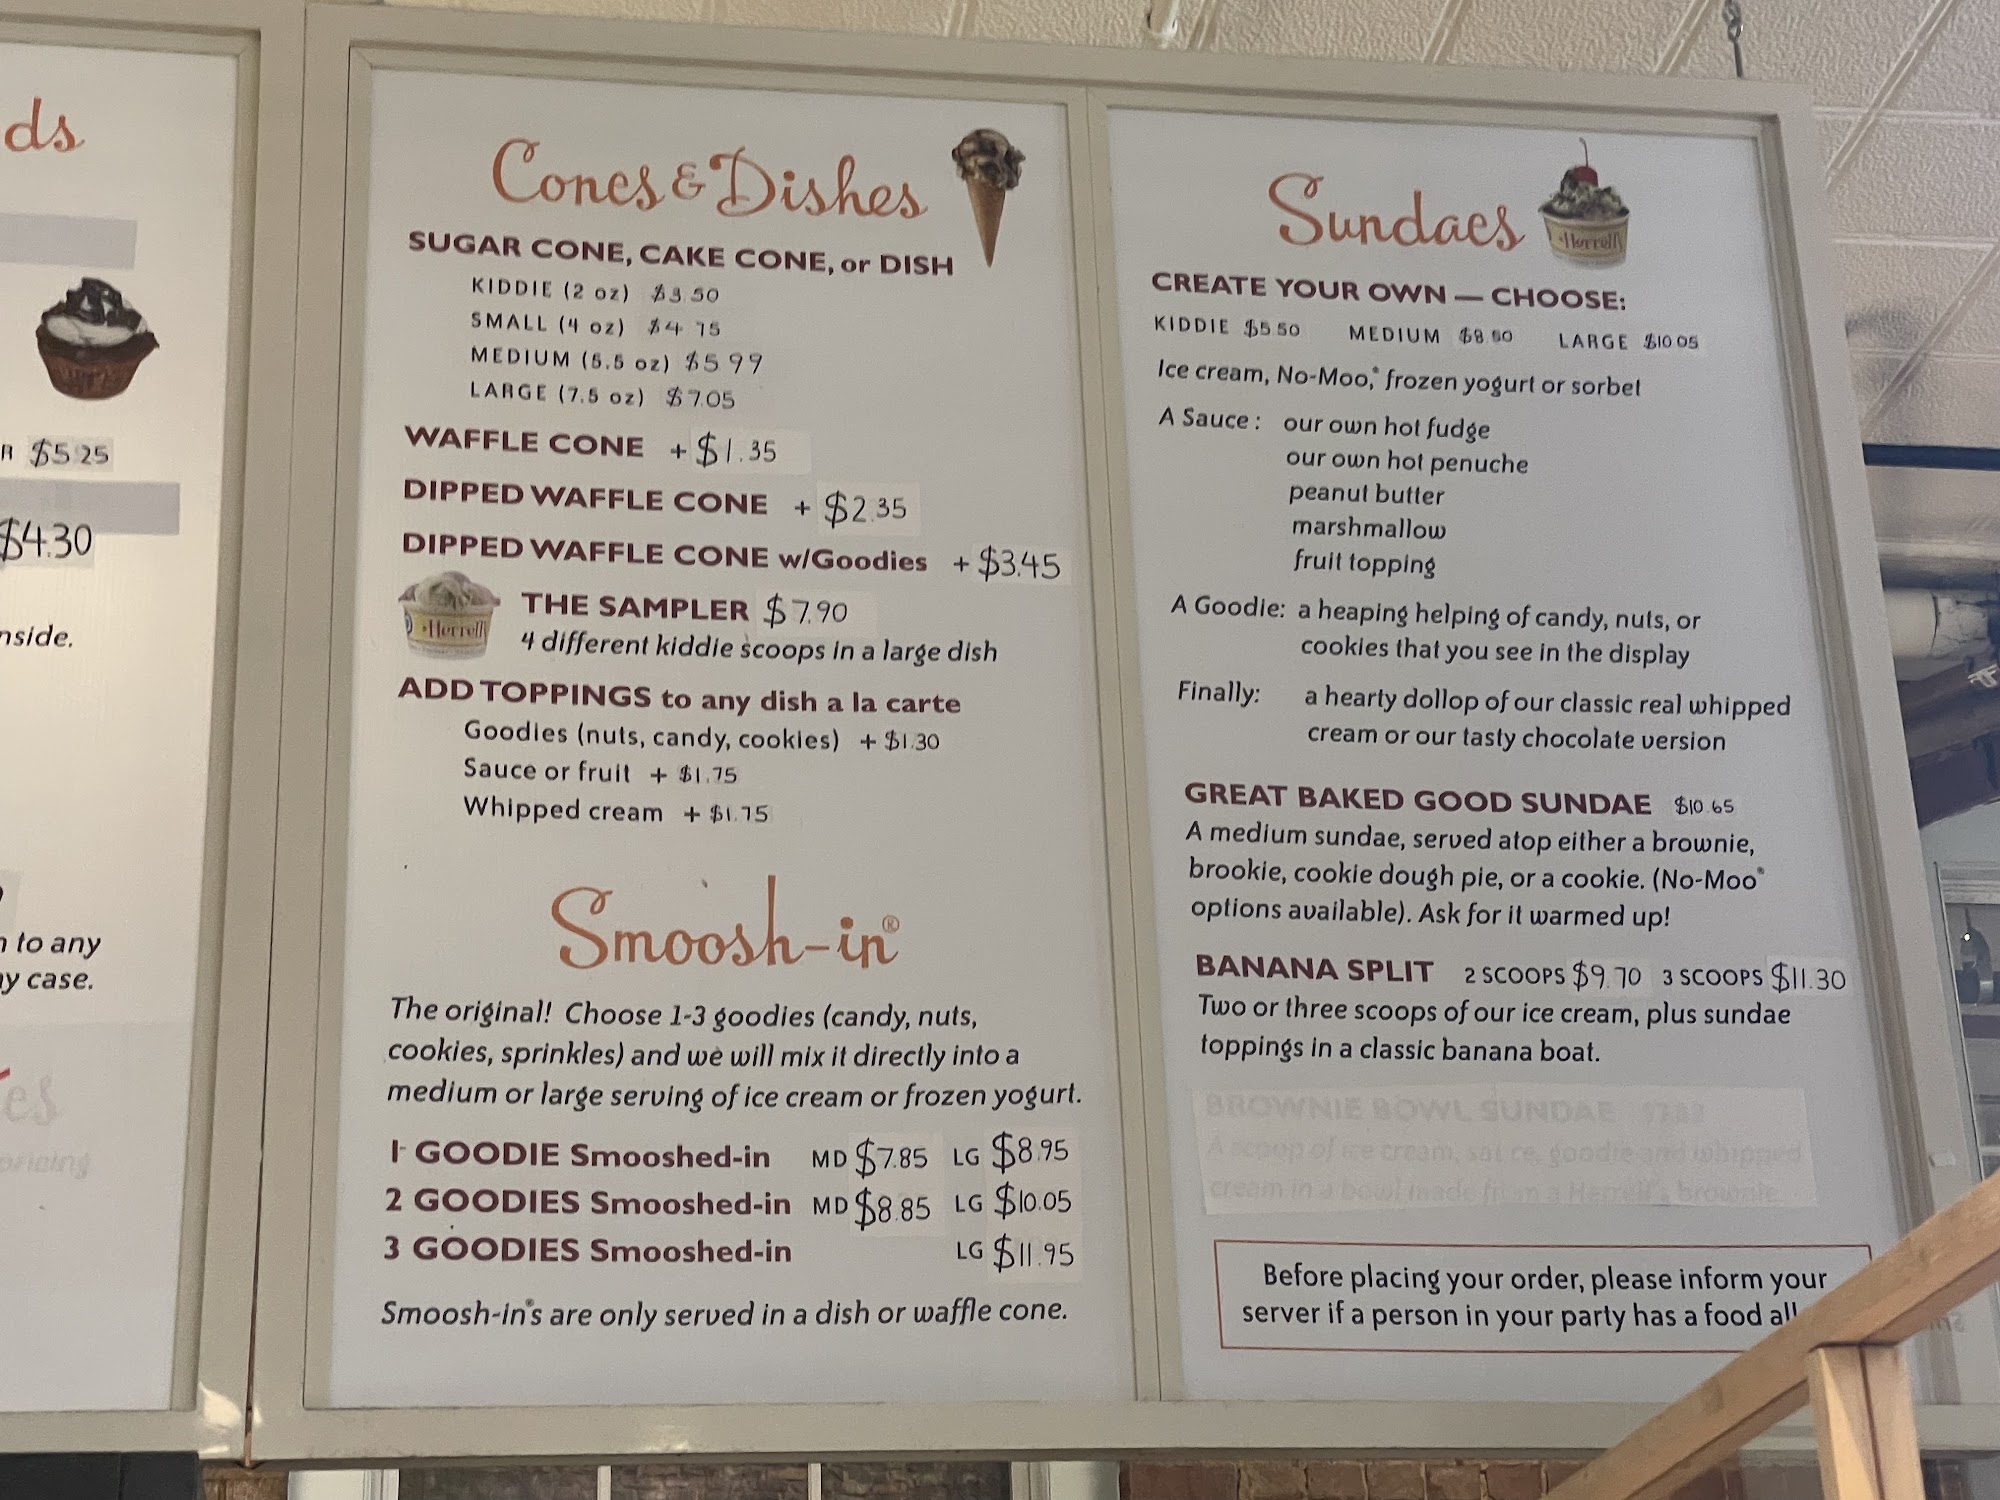 ds
R $5.25
$4.30
nside.
to any
y case.
es
pricing
Cones & Dishes
SUGAR CONE, CAKE CONE, or DISH
KIDDIE (2 oz) $3.50
SMALL (4 oz) $4.75
MEDIUM (5.5 oz) $5.99
LARGE (7.5 oz) $7.05
WAFFLE CONE + $1.35
DIPPED WAFFLE CONE + $2.35
DIPPED WAFFLE CONE w/Goodies + $3.45
Herrell's
THE SAMPLER $7.90
4 different kiddie scoops in a large dish
ADD TOPPINGS to any dish a la carte
Goodies (nuts, candy, cookies) + $1.30
Sauce or fruit + $1.75
Whipped cream + $1.75
Smoosh-in®
The original! Choose 1-3 goodies (candy, nuts,
cookies, sprinkles) and we will mix it directly into a
medium or large serving of ice cream or frozen yogurt.
1 GOODIE Smooshed-in MD $7.85 LG $8.95
2 GOODIES Smooshed-in MD $8.85 LG $10.05
3 GOODIES Smooshed-in LG $11.95
Smoosh-in®s are only served in a dish or waffle cone.
Sundaes
Herrell's
CREATE YOUR OWN — CHOOSE:
KIDDIE $5.50 MEDIUM LARGE $10.05
Ice cream, No-Moo,® frozen yogurt or sorbet
A Sauce: our own hot fudge
our own hot penuche
peanut butter
marshmallow
fruit topping
A Goodie: a heaping helping of candy, nuts, or
cookies that you see in the display
Finally: a hearty dollop of our classic real whipped
cream or our tasty chocolate version
GREAT BAKED GOOD SUNDAE $10.65
A medium sundae, served atop either a brownie,
brookie, cookie dough pie, or a cookie. (No-Moo®
options available). Ask for it warmed up!
BANANA SPLIT 2 SCOOPS $9.70 3 SCOOPS $11.30
Two or three scoops of our ice cream, plus sundae
toppings in a classic banana boat.
BROWNIE BOWL SUNDAE
A scoop of ice cream, sauce, goodie and whipped
cream in a bowl made from a Herrell's brownie
Before placing your order, please inform your
server if a person in your party has a food all